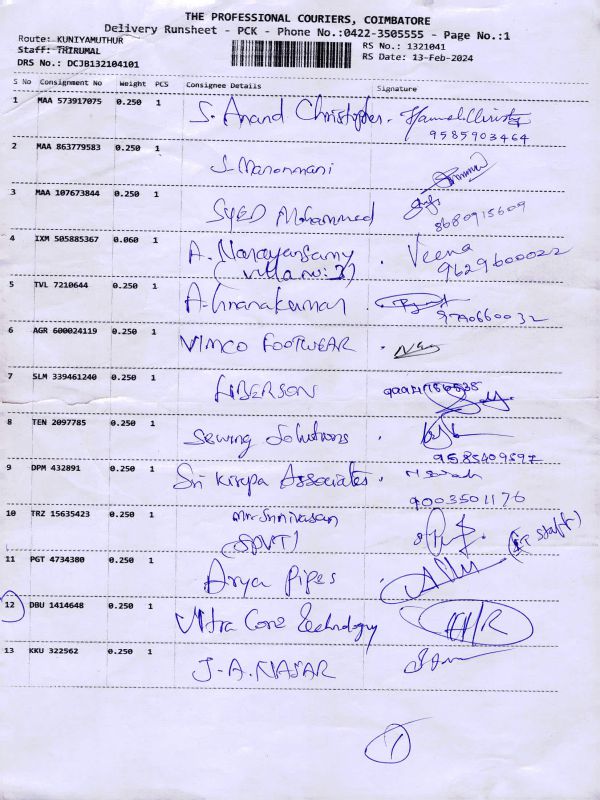 THE PROFESSIONAL COURIERS, COIMBATORE
Delivery Runsheet - PCK - Phone No.:0422-3505555 - Page No.:1
Route: KUNIYAMUTHUR
RS No.: 1321041
Staff: THIRUMAL
RS Date: 13-Feb-2024
DRS No.: DCJB132104101
S No Consignment No Weight PCS Consignee Details Signature
1 MAA 573917075 0.250 1 S. Anand Christopher.
9585903464
2 MAA 863779583 0.250 1 J. Manonmani
3 MAA 107673844 0.250 1 SYED Mohammed
8680915609
4 IXM 505885367 0.060 1 A. Narayansamy . Veena
(Villa no: 3) 9629600022
5 TVL 7210644 0.250 1 A. Gnanakumar
9790660032
6 AGR 600024119 0.250 1 VIMCO FOOTWEAR .
7 SLM 339461240 0.250 1
8 TEN 2097785 0.250 1 Sewing Solutions .
9585409597
9 DPM 432891 0.250 1 Sri Krupa Associates.
9003501176
10 TRZ 15635423 0.250 1 Mr. Srinivasan
11 PGT 4734380 0.250 1 Arya Pipes
12 DBU 1414648 0.250 1 Ultra Core Technology
13 KKU 322562 0.250 1 J-A. NASAR
1